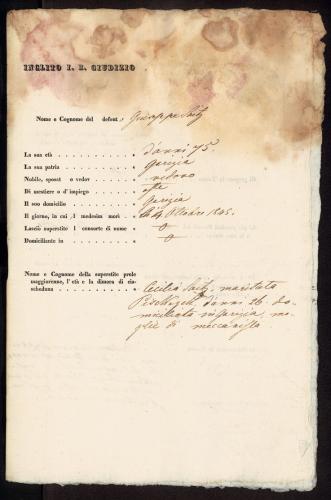 INCLITO I. R. GIUDIZIO
Nome e Cognome del defont Giuseppe
La sua età d'anni 75.
La sua patria Gorizia
Nobile, sposat o vedov vedovo
Di mestiere o d'impiego
Il suo domicilio Gorizia
Il giorno, in cui l medesim morì li 4 Ottobre 845.
Lasciò superstite l consorte di nome
Domiciliante in
Nome e Cognome della superstite prole
maggiorenne, l'età e la dimora di cia- Cecilia maritata
scheduna d'anni 26. do
miciliata in Gorizia, mo
glie di meccanista.